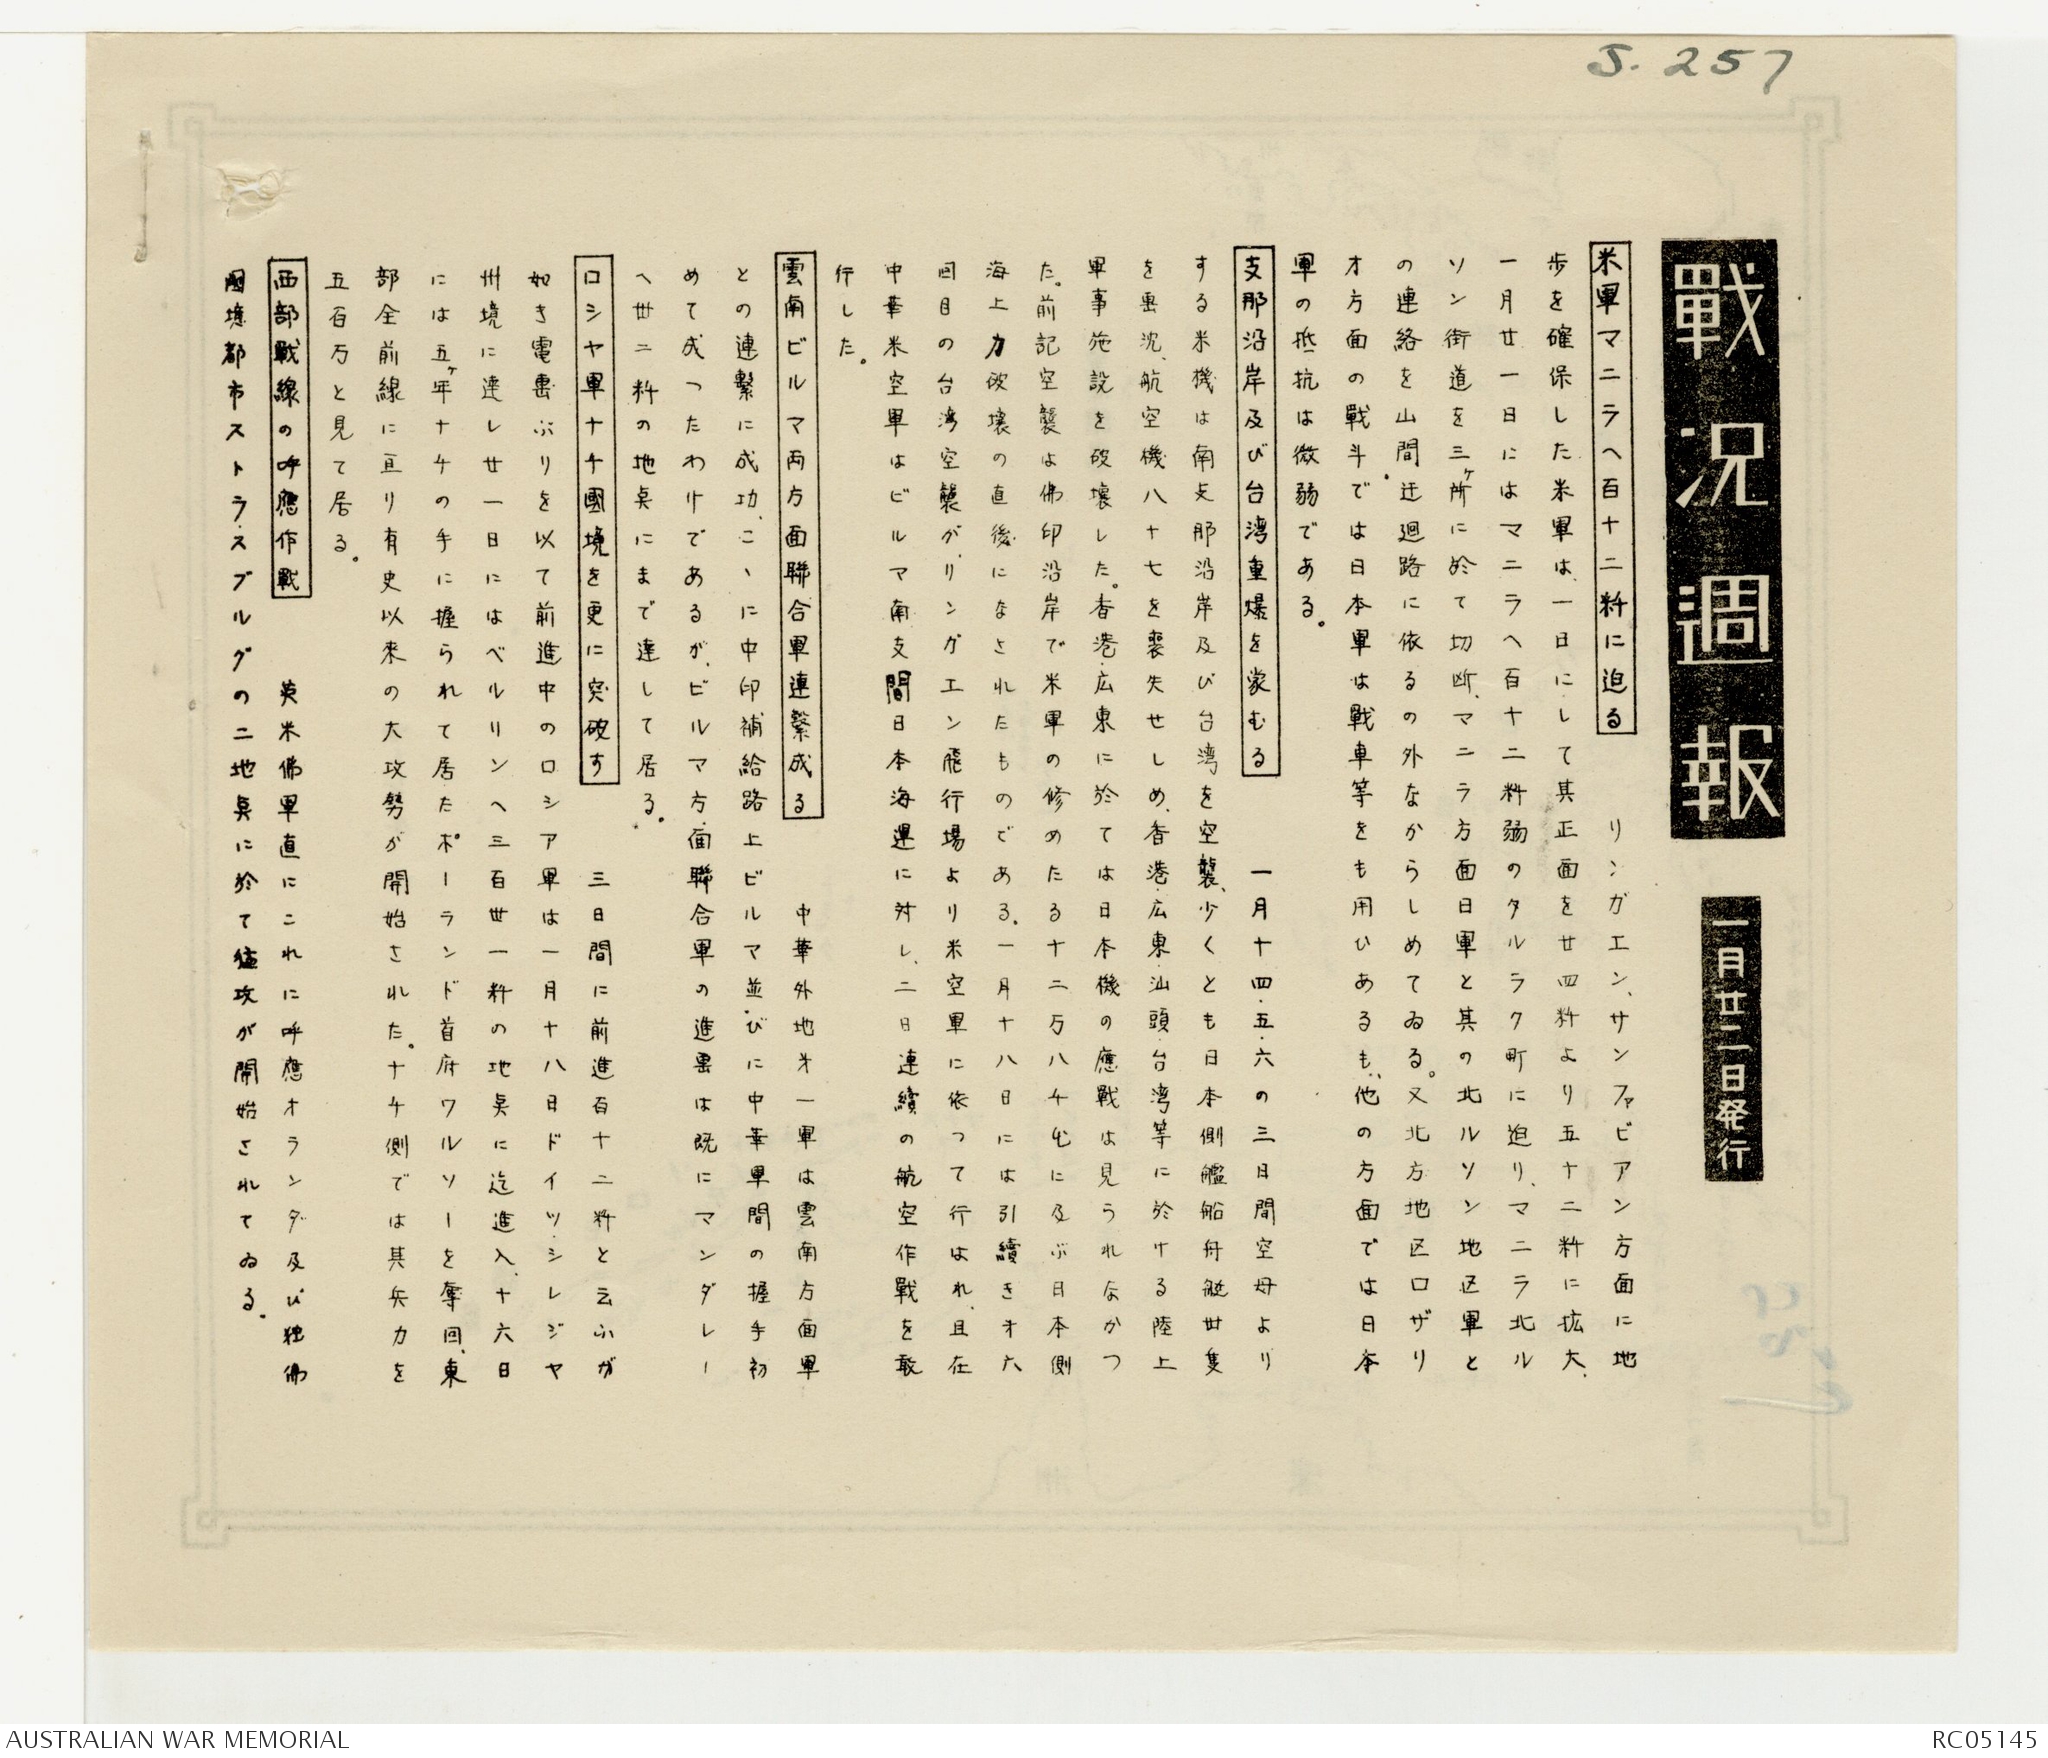 S. 257
戰況週報
一月廿二日発行
米軍マニラヘ百十二粁に迫る　リンガエン、サンファビアン方面に地
歩を確保した米軍は、一日にして其正面を廿四粁より五十二粁に拡大、
一月廿一日にはマニラヘ百十二粁弱のタルラク町に迫り、マニラ北ル
ソン街道を三ヶ所に於て切断、マニラ方面日軍と其の北ルソン地区軍と
の連絡を山間迂廻路に依るの外なからしめてゐる。又北方地区ロザリ
オ方面の戰斗では日本軍は戰車等をも用ひあるも、他の方面では日本
軍の抵抗は微弱である。
支那沿岸及び台湾重爆を蒙むる　一月十四・五・六の三日間空母より
する米機は南支那沿岸及び台湾を空襲、少くとも日本側艦船舟艇卅隻
を轟沈、航空機八十七を喪失せしめ、香港・広東・汕頭・台湾等に於ける陸上
軍事施設を破壊した。香港・広東に於ては日本機の應戰は見られなかつ
た。前記空襲は佛印沿岸で米軍の修めたる十二万八千屯に及ぶ日本側
海上力破壊の直後になされたものである。一月十八日には引續き才六
回目の台湾空襲が、リンガエン飛行場より米空軍に依つて行はれ、且在
中華米空軍はビルマ南支間日本海運に対し、二日連續の航空作戰を敢
行した。
雲南ビルマ両方面聯合軍連繫成る　中華外地才一軍は雲南方面軍
との連繫に成功、こゝに中印補給路上ビルマ並びに中華軍間の握手初
めて成つたわけであるが、ビルマ方面聯合軍の進出は既にマンダレー
へ卅二粁の地点にまで達して居る。
ロシヤ軍ナチ國境を更に突破す　三日間に前進百十二粁と云ふが
如き電撃ぶりを以て前進中のロシア軍は一月十八日ドイツ・シレジヤ
州境に達し廿一日にはベルリンヘ三百卅一粁の地点に迄進入、十六日
には五ヶ年ナチの手に握られて居たポーランド首府ワルソーを奪回、東
部全前線に亘り有史以来の大攻勢が開始された。ナチ側では其兵力を
五百万と見て居る。
西部戰線の呼應作戰　英米佛軍直にこれに呼應オランダ及び独佛
國境都市ストラスブルグの二地点に於て猛攻が開始されてゐる。
AUSTRALIAN WAR MEMORIAL
RC05145